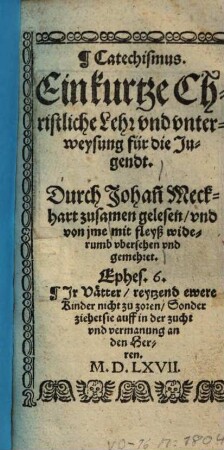 ¶ Catechismus.
Ein kurtze Ch-
ristliche Lehr vnd vnter-
weysung für die Ju-
gendt.
Durch Johañ Meck-
hart zusamen gelesen / vnd
von jme mit fleyß wide-
rumb vbersehen vnd
gemehret.
Ephes. 6.
¶ Jr Vätter / reytzend ewere
Kinder nicht zu zoren / Sonder
ziehet sie auff in der zucht
vnd vermanung an
den Her-
ren.
M. D. LXVII.